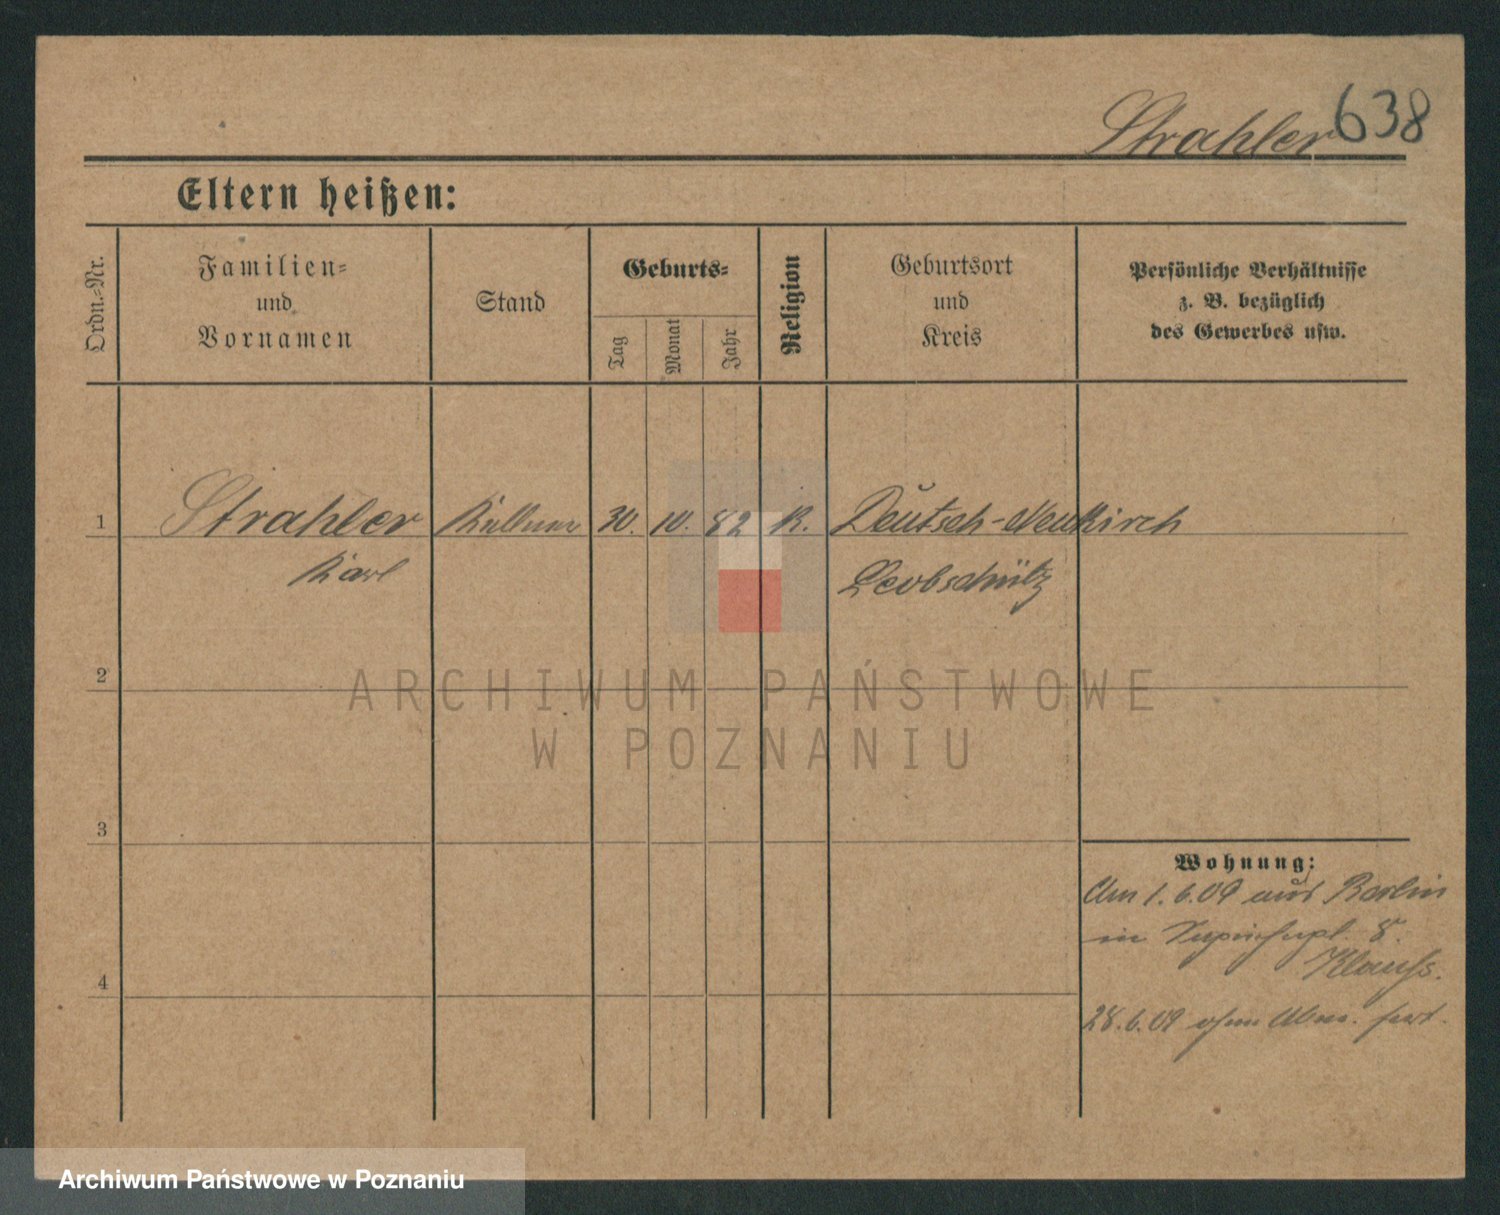 Strahler 638
Eltern heißen:
Ordn.-Nr.
Familien-
und
Vornamen
Stand
Geburts-
Tag
Monat
Jahr
Religion
Geburtsort
und
Kreis
Persönliche Verhältnisse
z. B. bezüglich
des Gewerbes usw.
1 Strahler Kellner 30. 10. 82 K. Deutsch-Neukirch
Karl Leobschütz
2
3
4
Wohnung:
Am 1.6.09 aus Berlin
in 8.
28.6.09 ohne Abm. fort.
ARCHIWUM PAŃSTWOWE
W POZNANIU
Archiwum Państwowe w Poznaniu